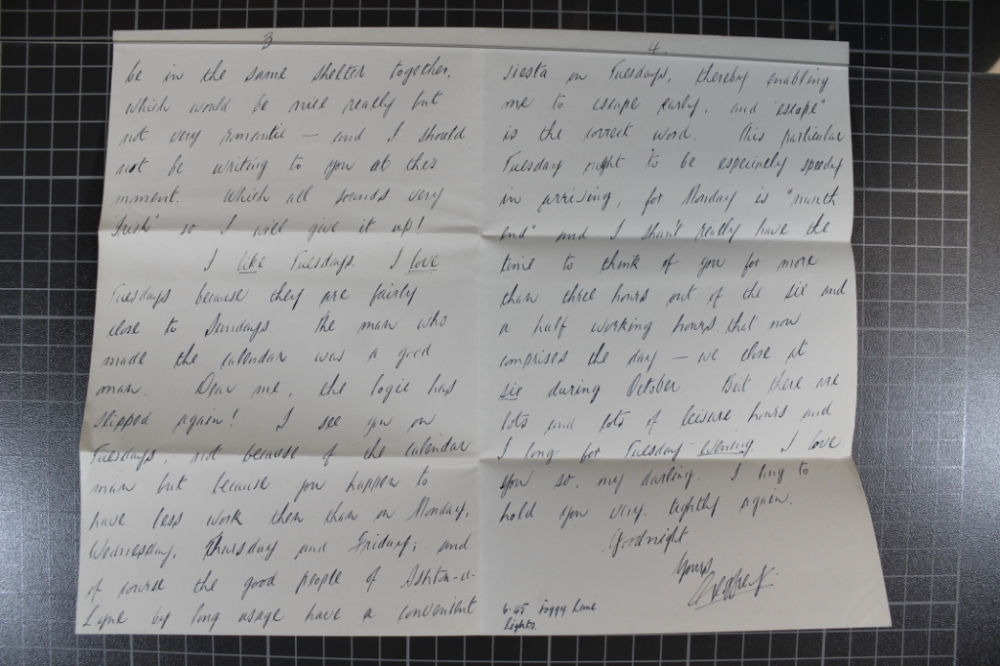 3
be in the same shelter together,
which would be nice really but
not very romantic — and I should
not be writing to you at this
moment. Which all sounds very
"Irish" so I will give it up!
I like Tuesdays. I love
Tuesdays because they are fairly
close to Sundays. The man who
made the calendar was a good
man. Dear me, the logic has
slipped again! I see you on
Tuesdays, not because of the calendar
man but because you happen to
have less work then than on Monday,
Wednesday, Thursday and Friday; and
of course the good people of Ashton-u-
Lyne by long usage have a convenient
4
siesta on Tuesdays, thereby enabling
me to escape early, and "escape"
is the correct word. This particular
Tuesday ought to be especially speedy
in arriving, for Monday is "month
end" and I shan't really have the
time to think of you for more
than three hours out of the six and
a half working hours that now
comprises the day — we close at
six during October. But there are
lots and lots of leisure hours and
I long for Tuesday evening. I love
you so, my darling. I long to
hold you very tightly again.
Goodnight
Yours
6.45 Foggy Lane
Lights.